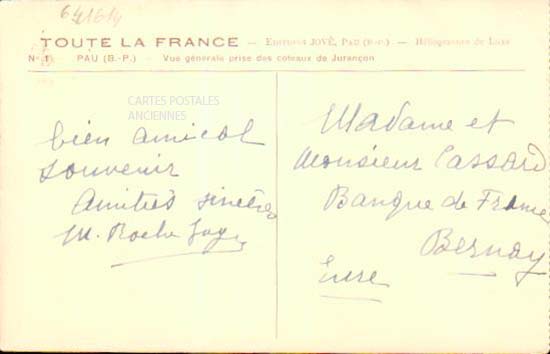 641614
TOUTE LA FRANCE — EDITIONS JOVÉ, PAU (B.-P.) — Héliogravure de Luxe
PAU (B.-P.) — Vue générale prise des coteaux de Jurançon
CARTES POSTALES
ANCIENNES
bien amical
souvenir
Amitiés sincères
M. Roche
Madame et
Monsieur Cassard
Banque de France
Bernay
Eure